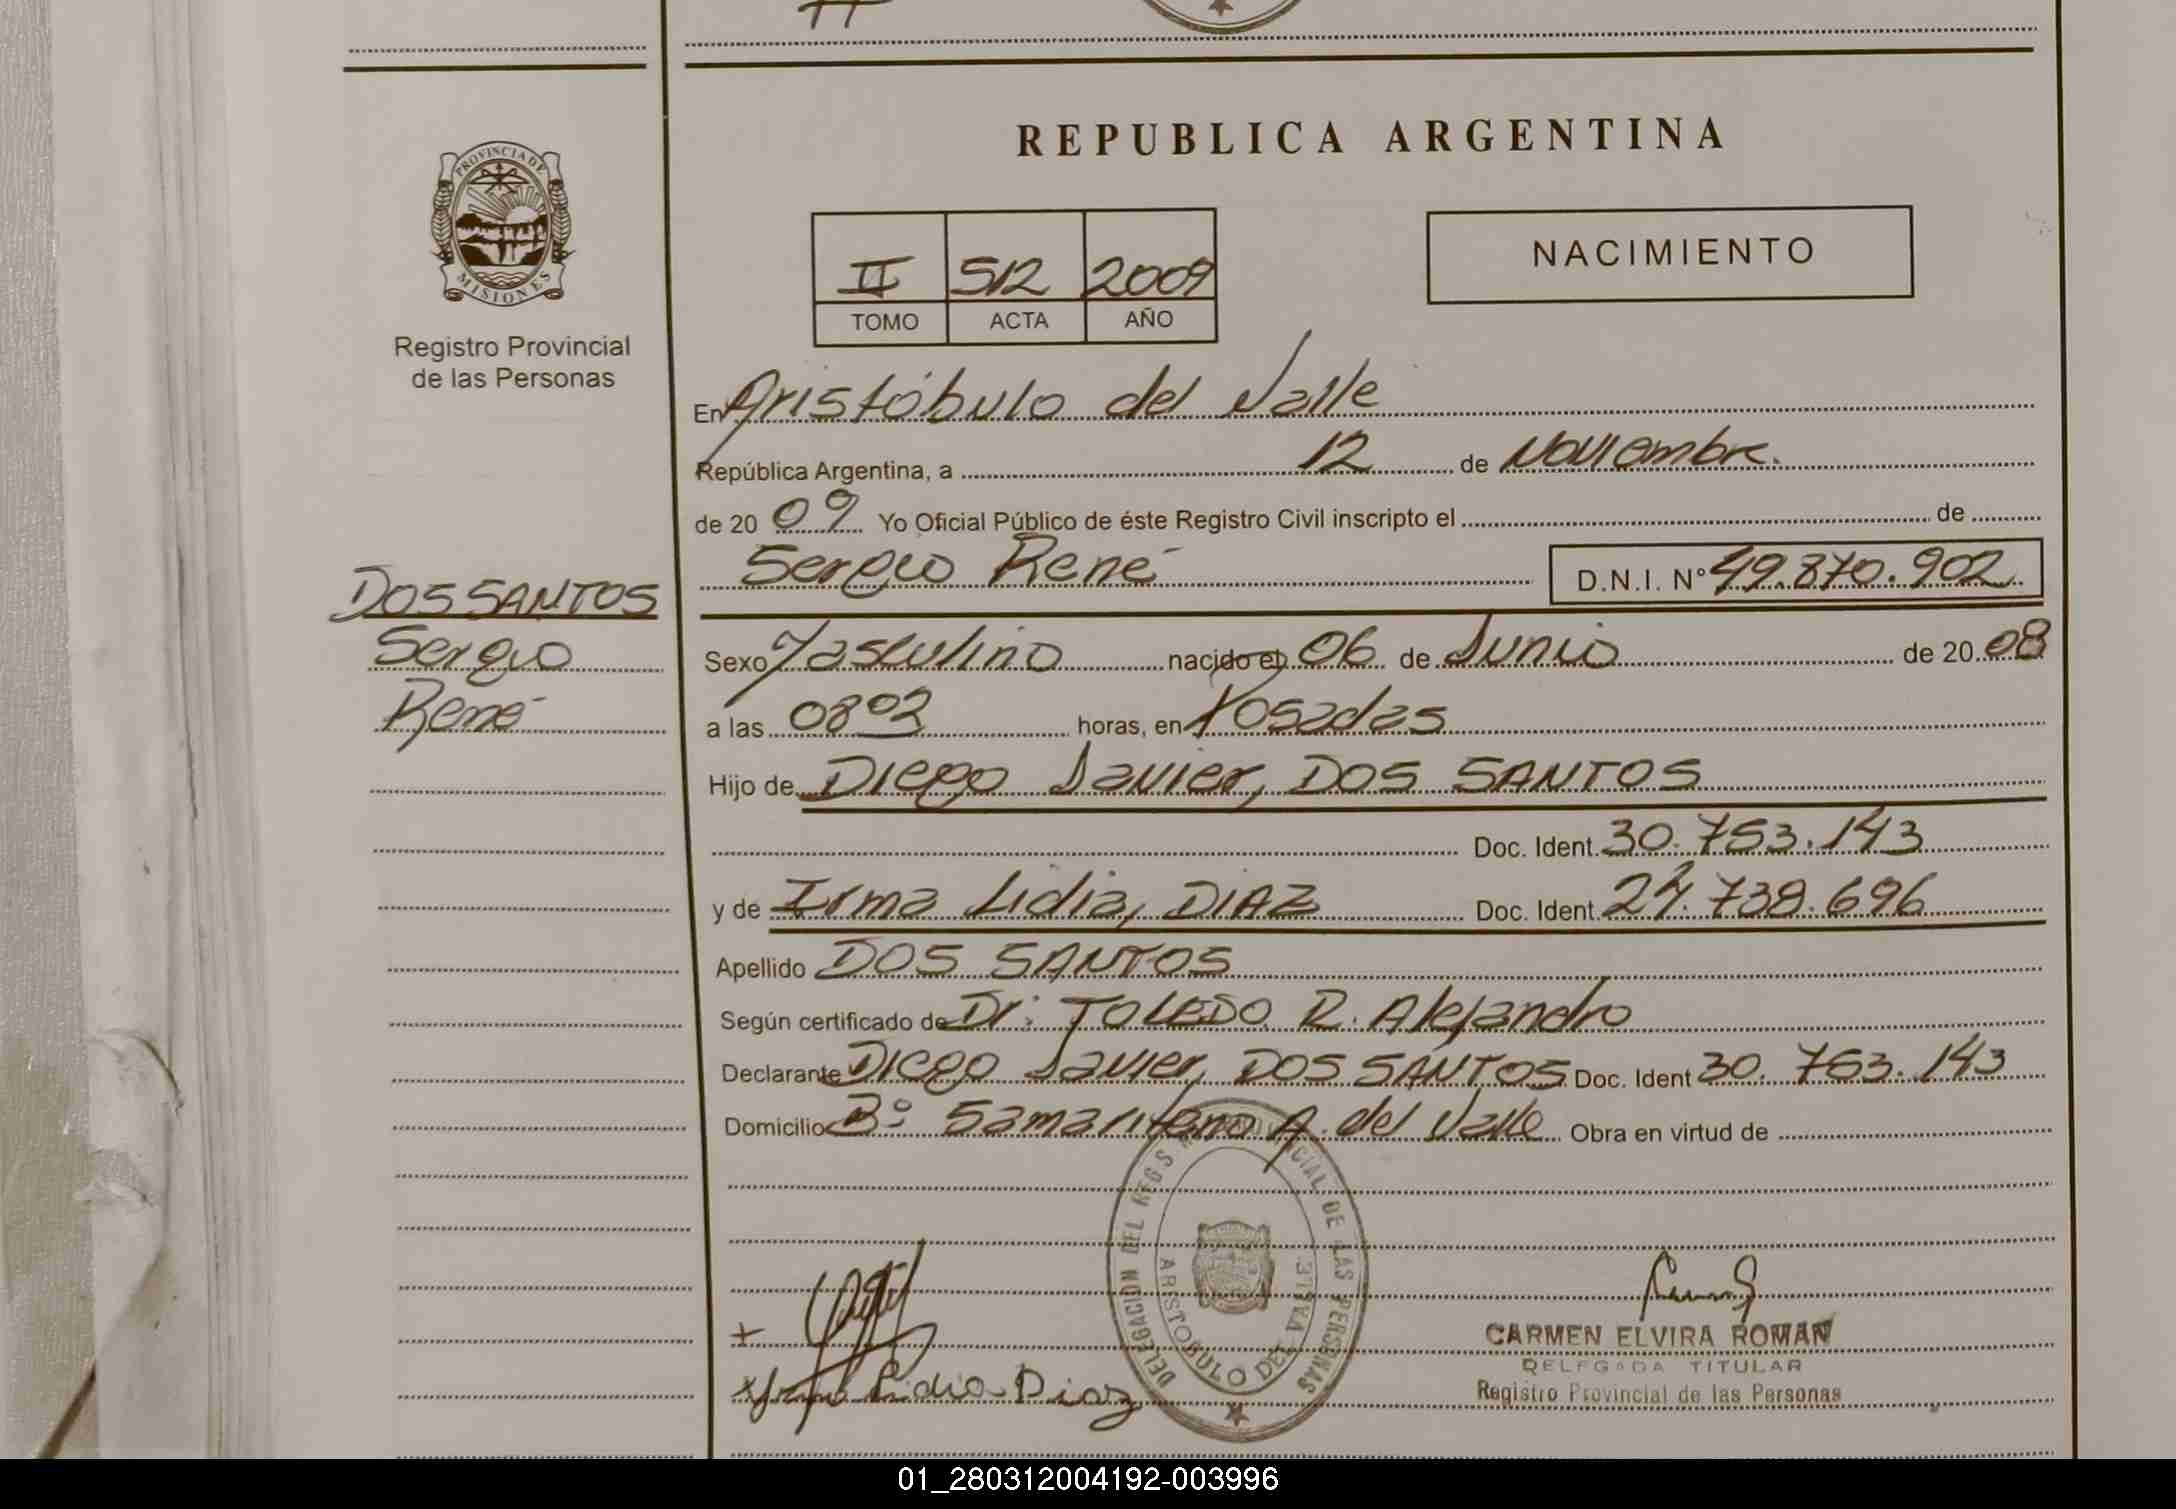 REPUBLICA ARGENTINA
PROVINCIA DE
MISIONES
Registro Provincial
de las Personas
II 512 2009
TOMO ACTA AÑO
NACIMIENTO
En Aristóbulo del Valle
República Argentina, a 12 de Noviembre.
de 20 09 Yo Oficial Público de éste Registro Civil inscripto el de
Sergio René D.N.I. N° 49.870.902
DOS SANTOS
Sergio
René
Sexo Masculino nacido el 06 de Junio de 20 08
a las 0802 horas, en Posadas
Hijo de Diego Javier, DOS SANTOS
Doc. Ident. 30.753.143
y de Irma Lidia, DIAZ Doc. Ident. 24.738.696
Apellido DOS SANTOS
Según certificado de Dr: TOLEDO R. Alejandro
Declarante Diego Javier, DOS SANTOS Doc. Ident 30.763.143
Domicilio B° Samaritano A. del Valle Obra en virtud de
DELEGACION DEL REG PROVINCIAL DE LAS PERSONAS
ARISTOBULO DEL VALLE
+
x Irma Lidia Diaz
CARMEN ELVIRA ROMAN
DELEGADA TITULAR
Registro Provincial de las Personas
01_280312004192-003996